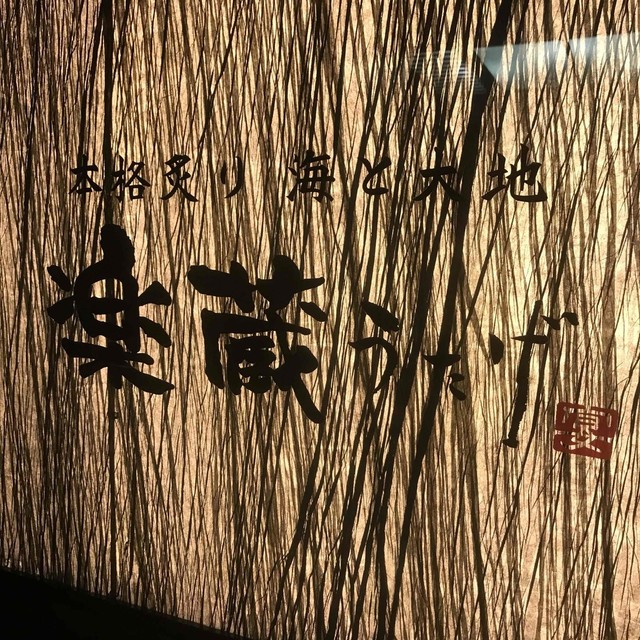 本格炙り 海と大地
楽蔵うたげ